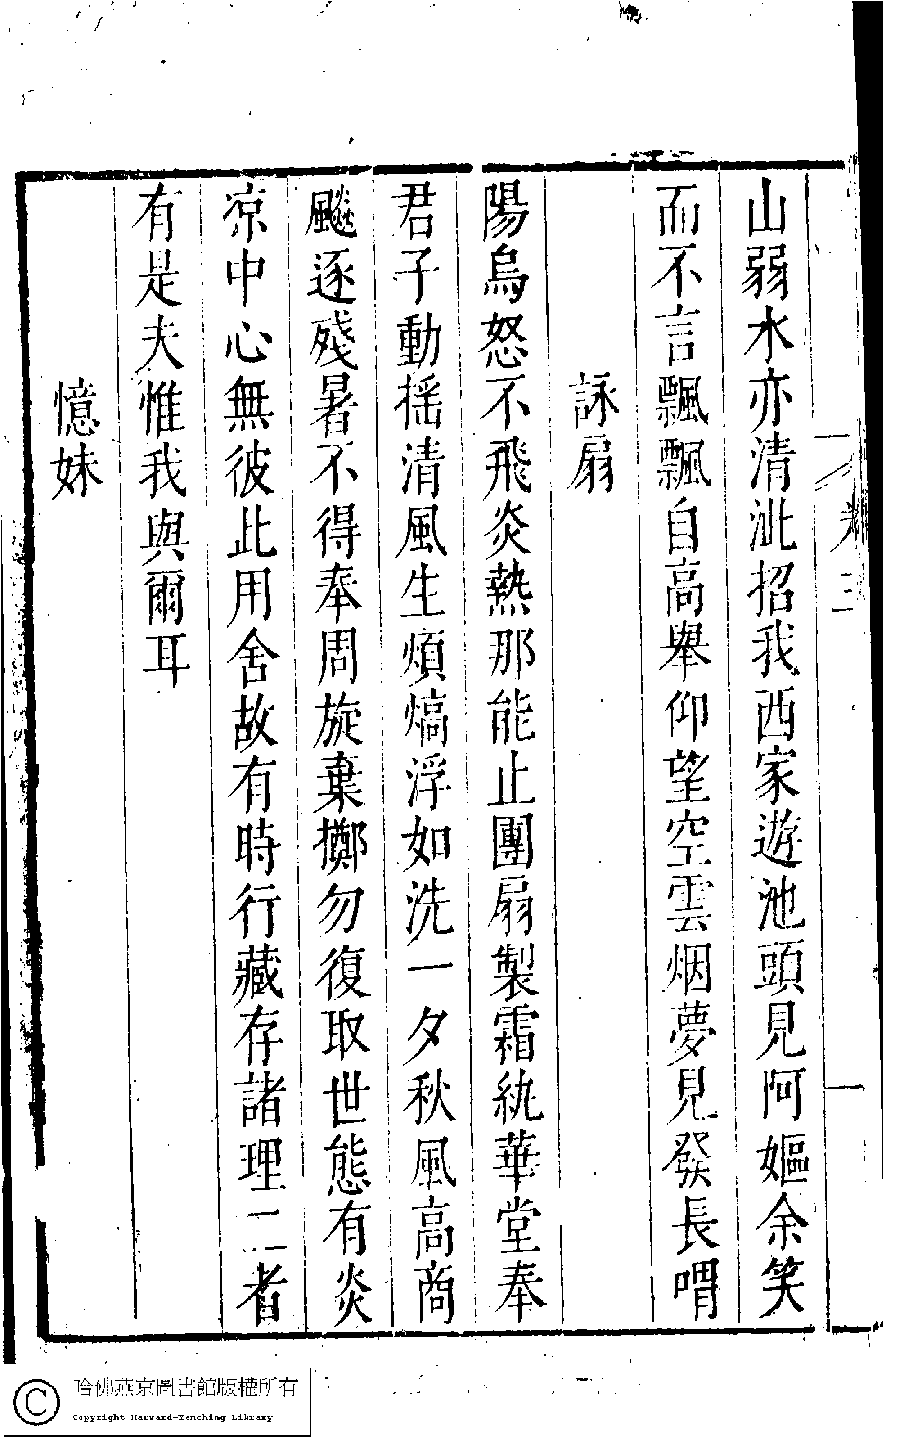 山弱水亦清沘招我西家遊池頭見阿嫗余笑
而不言飄飄自高舉仰望空雲烟夢見發長喟
詠扇
陽烏怒不飛炎熱那能止團扇製霜紈華堂奉
君子動揺清風生煩熇浮如洗一夕秋風高商
飈逐殘暑不得奉周旋棄擲勿復取世態有炎
凉中心無彼此用舍故有時行藏存諸理二者
有是夫惟我與爾耳
憶妹
卷三
哈佛燕京圖書館版權所有
Copyright Harvard-Yenching Library